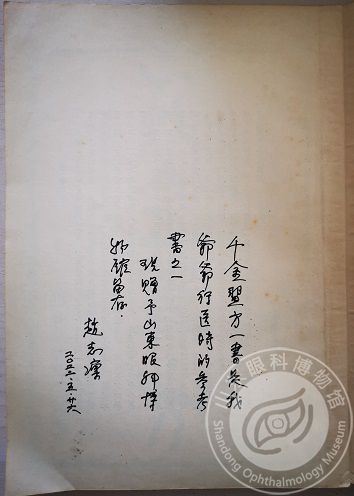 千金翼方一書是我
爷爷行医時的参考
書之一
现赠予山東眼科博
物館留存.
趙志
山东眼科博物馆
Shandong Ophthalmology Museum